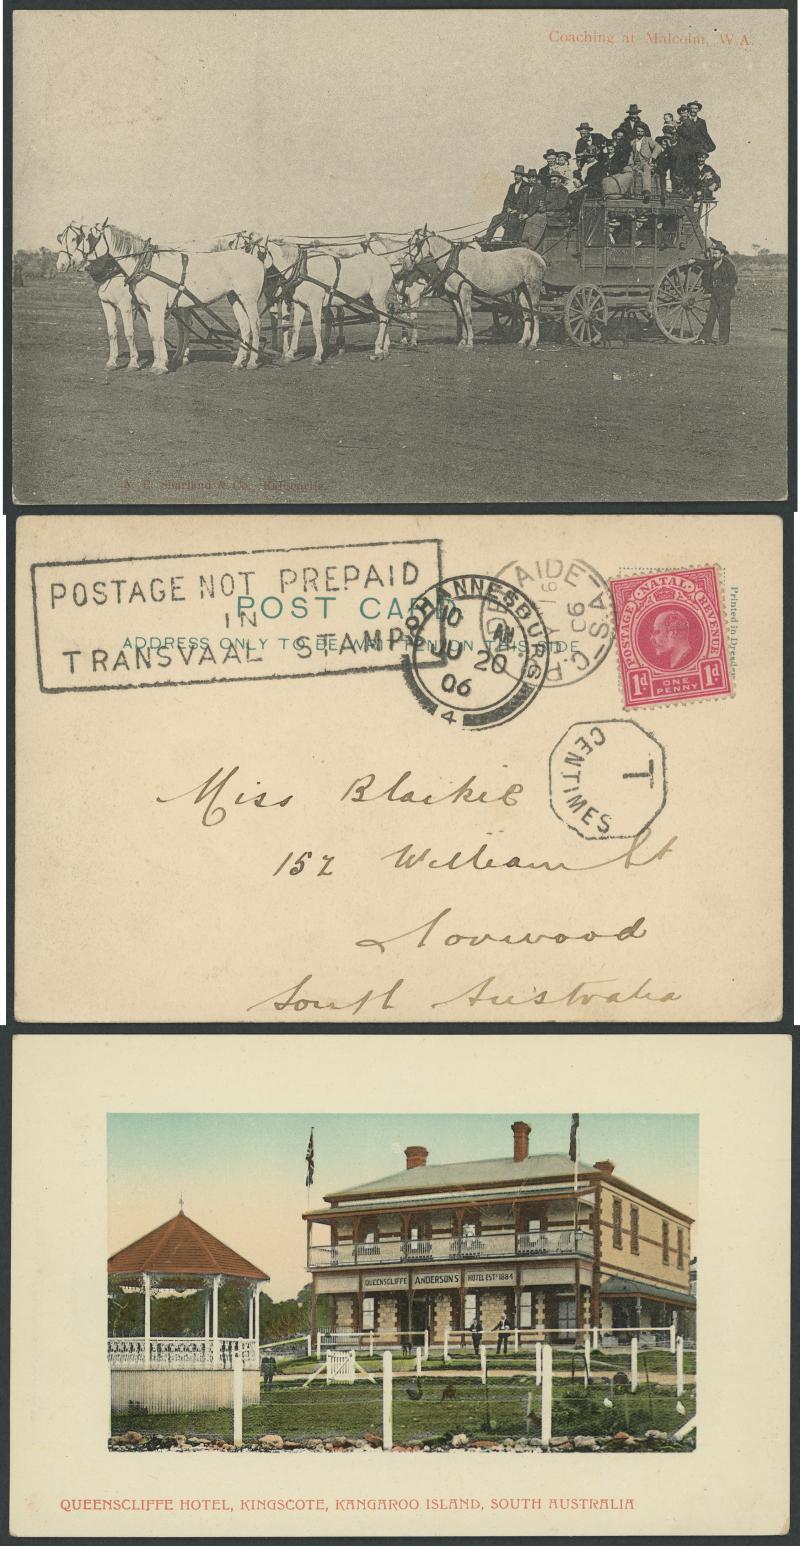 Coaching at Malcolm, W.A.
A. E. Sharland & Co., Kalgoorlie.
POSTAGE NOT PREPAID
IN
TRANSVAAL STAMP
POST CARD
ADDRESS ONLY TO BE WRITTEN ON THIS SIDE
JOHANNESBURG
10 AM
20
06
4
AIDE-S.A.
06
POSTAGE NATAL REVENUE
1d ONE PENNY 1d
Printed in Dresden
T
CENTIMES
Miss Blaikie
157 William St
Norwood
South Australia
QUEENSCLIFFE ANDERSON'S HOTEL ESTD 1884
QUEENSCLIFFE HOTEL, KINGSCOTE, KANGAROO ISLAND, SOUTH AUSTRALIA